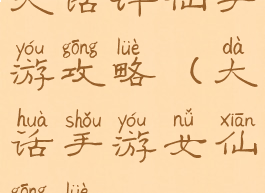 大话详仙手
yóu gōng lüè dà
游攻略（大
huà shǒu yóu nǚ xiān
话手游女仙
gōng lüè